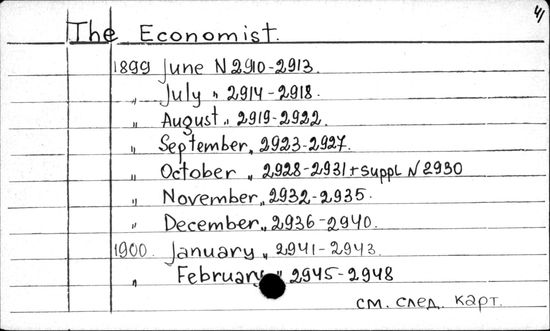 41
The Economist.
1899 June N 2910-2913.
„ July „ 2914-2918.
„ August „ 2919-2922.
„ September „ 2923-2927.
„ October „ 2928-2931 + suppl N 2930
„ November „ 2932-2935.
„ December „ 2936-2940.
1900. January „ 2941-2943.
„ February „ 2945-2948
см. след. карт.